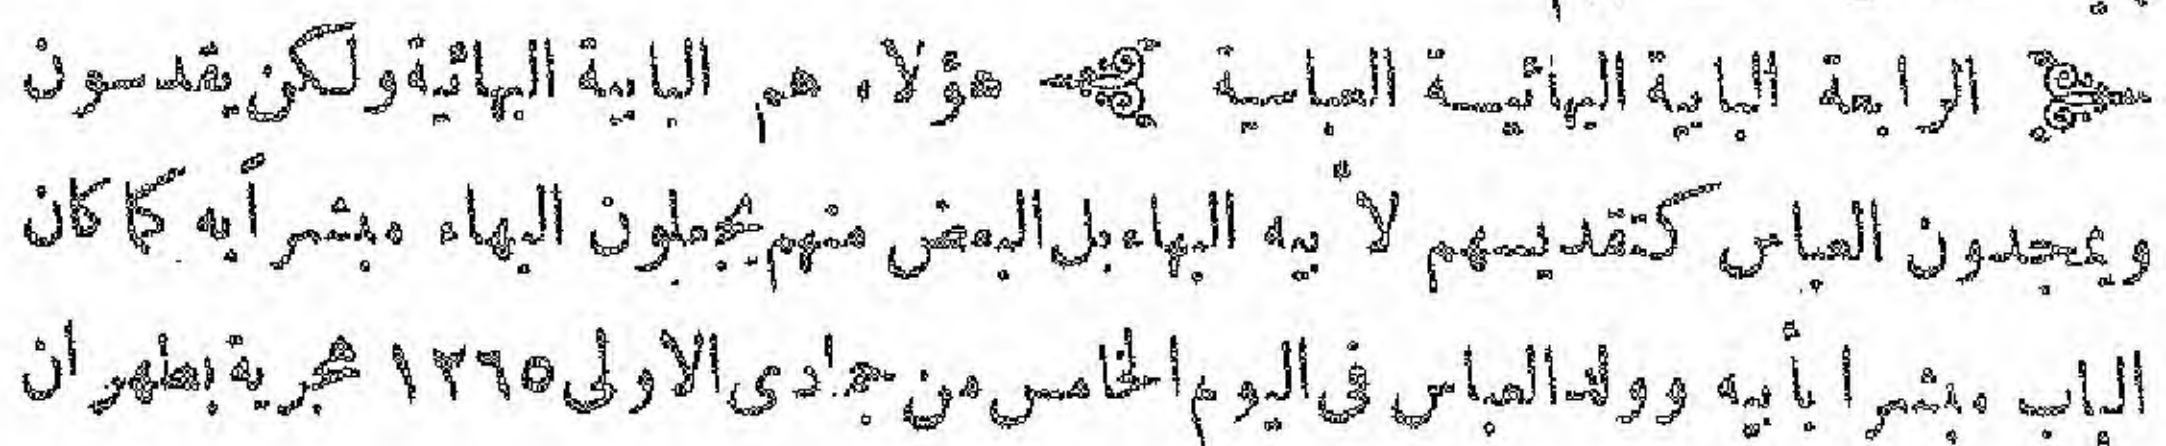 الرابعة البابية البهائية العباسية هؤلاء هم البابية البهائية ولكن يقدسون
ويمجدون العباس كتقديسهم لأبيه البهاء بل البعض منهم يجعلون البهاء مبشراً به كما كان
الباب مبشراً بأبيه وولد العباس في اليوم الخامس من جمادى الاولى ١٢٦٥ هجرية بطهران